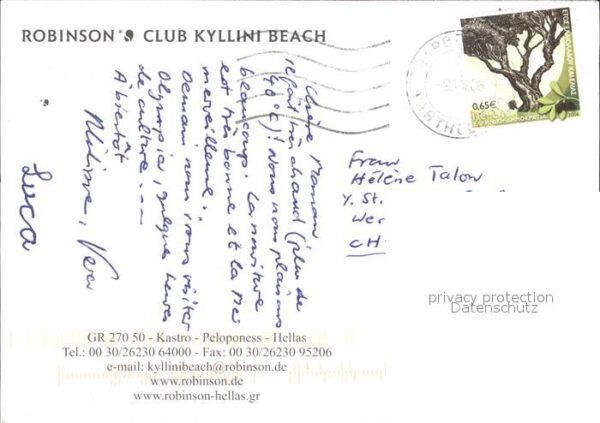 ROBINSON CLUB KYLLINI BEACH
Chère Maman
il fait très chaud (plus de
40°C)! Nous nous plaisons
beaucoup. La nourriture
est très bonne et la mer
merveilleuse.
Demain nous irons visiter
Olympia, quelques heures
de culture ...
A bientôt
Vera
Luca
0,65€
Frau
Hélène Talon
Y. St.
Wer
CH
privacy protection
Datenschutz
GR 270 50 - Kastro - Peloponess - Hellas
Tel.: 00 30/26230 64000 - Fax: 00 30/26230 95206
e-mail: kyllinibeach@robinson.de
www.robinson.de
www.robinson-hellas.gr